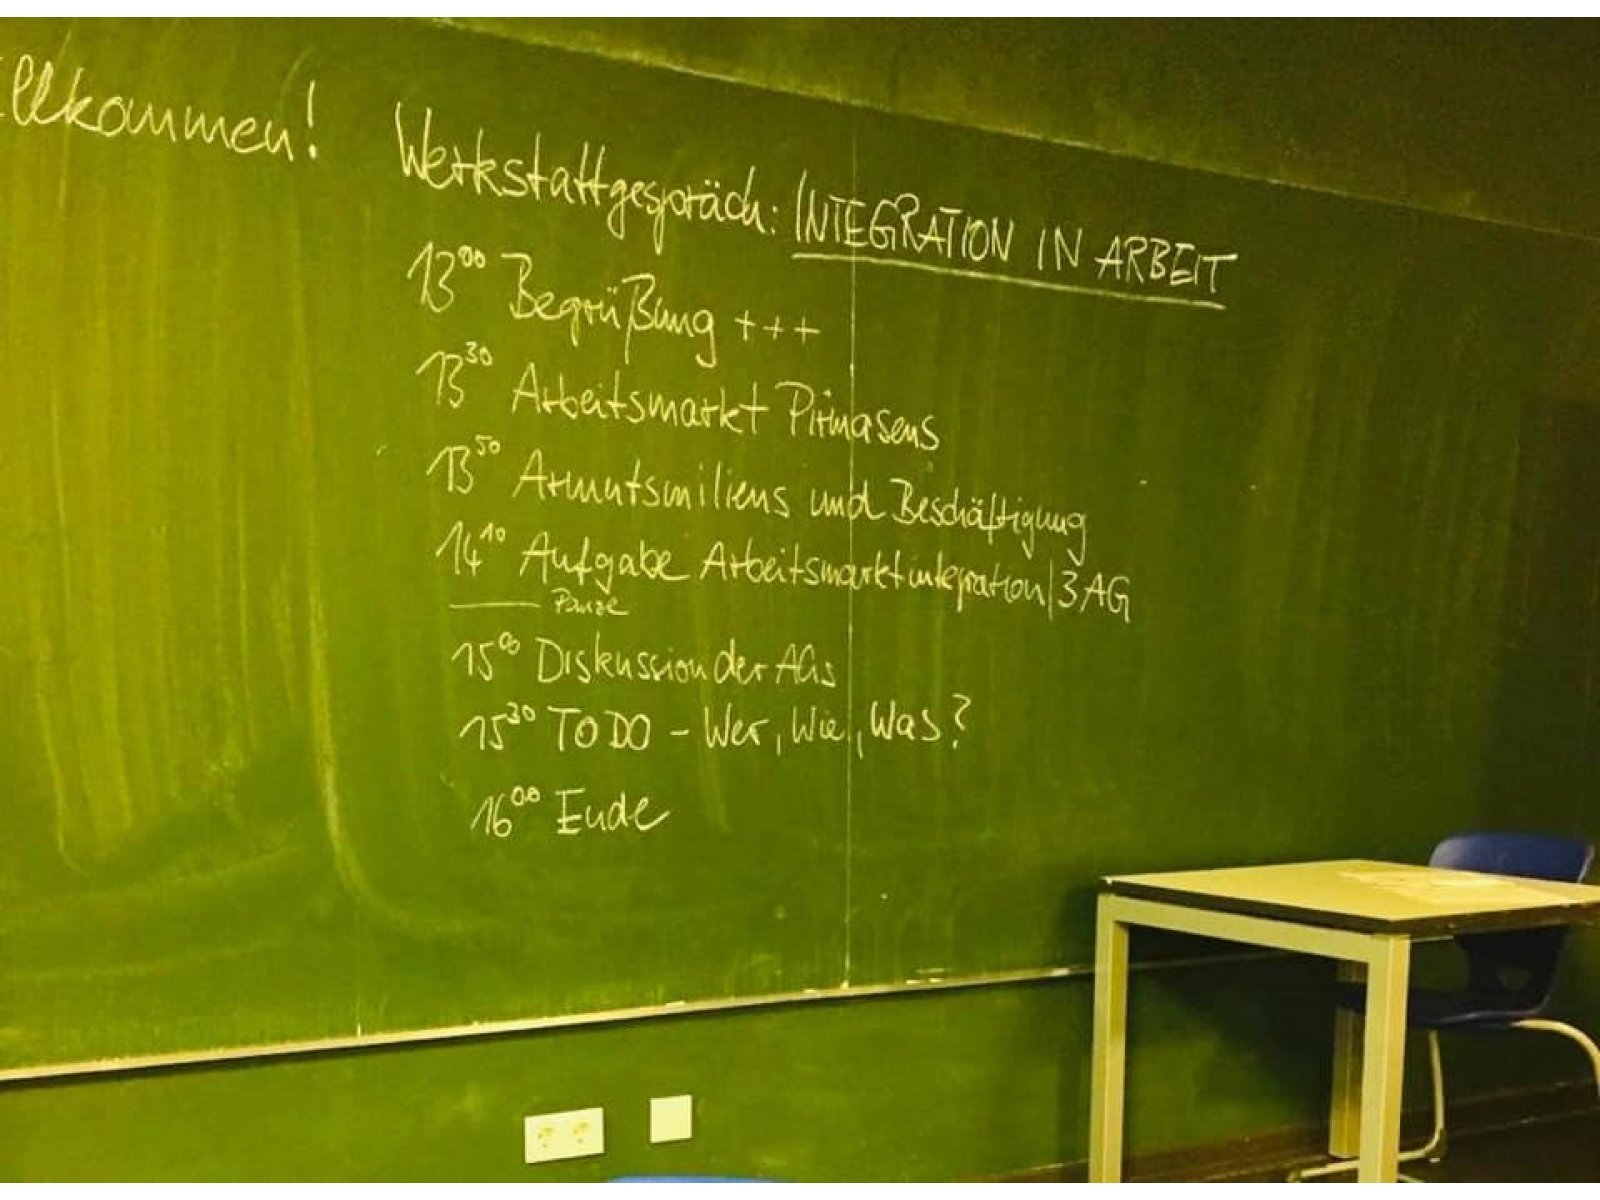 illkommen!
Werkstattgespräch: INTEGRATION IN ARBEIT
13⁰⁰ Begrüßung +++
13³⁰ Arbeitsmarkt Pirmasens
13⁵⁰ Armutsmilieus und Beschäftigung
14¹⁰ Aufgabe Arbeitsmarktintegration/3 AG
Pause
15⁰⁰ Diskussion der AGs
15³⁰ TO DO - Wer, Wie, Was?
16⁰⁰ Ende